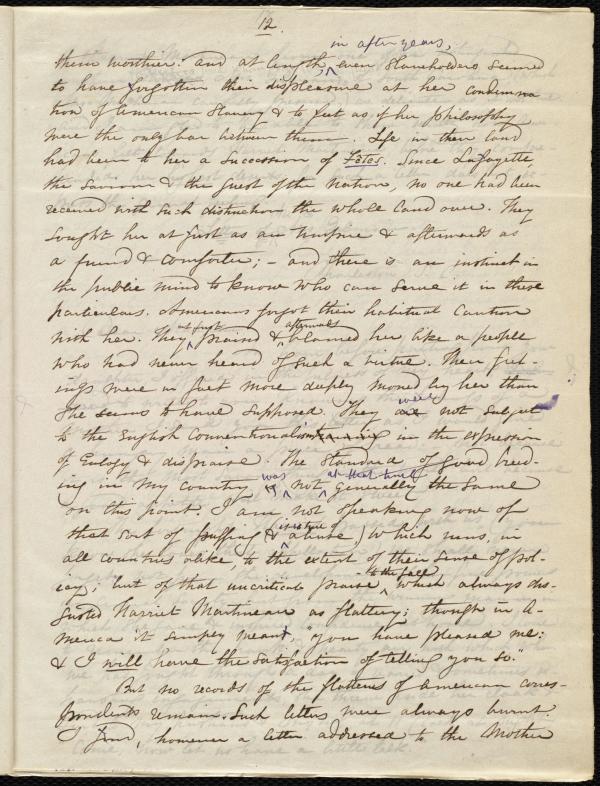 12.
in after years,
them worthier: and at length, ^ even Slaveholders seemed
to have forgotten their displeasure at her condemna
tion of American Slavery & to feel as if her philosophy
were the only bar between them. Life in their land
had been to her a succession of Fêtes. Since Lafayette,
the Saviour & the guest of the nation, no one had been
received with such distinction the whole land over. They
sought her at first as an umpire & afterwards as
a friend & comforter; – and there is an instinct in
the public mind to know who can serve it in these
particulars. Americans forgot their habitual caution
at first afterwards
with her. They ^ praised & ^ blamed her, like a people
who had never heard of such a virtue. Their feel-
ings were in fact more deeply moved by her than
were
She seems to have supposed. They are not subject
to the English Conventionalism in the expression
of Eulogy & dispraise. The standard of good breed-
was at that time
ing in my country is ^ not ^ generally the same
on this point. I am not speaking now of
that sort of puffing & ^ abuse) which runs, in
all countries alike, to the extent of their sense of pol-
to the face
icy; but of that uncritical praise ^ which always dis-
gusted Harriet Martineau as flattery: though in A-
merica it simply meant, "you have pleased me:
& I will have the satisfaction of telling you so."
But no records of the flatteries of American corres-
pondents remain. Such letters were always burnt.
I find, however a letter addressed to the Mother